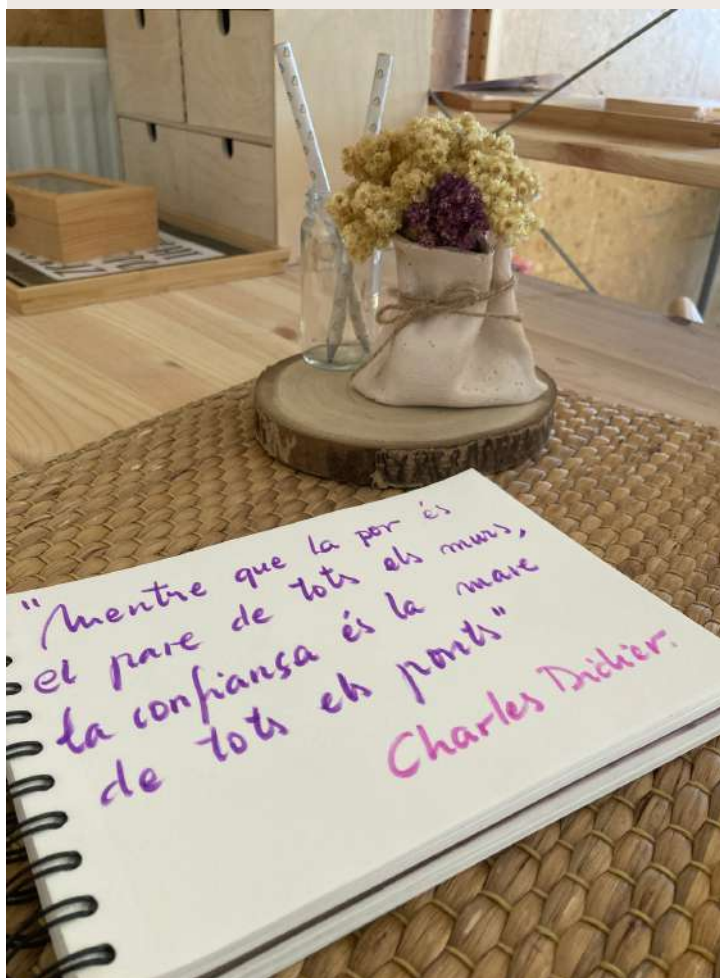 "Mentre que la por és
el pare de tots els murs,
la confiança és la mare
de tots els ponts"
Charles Didier.